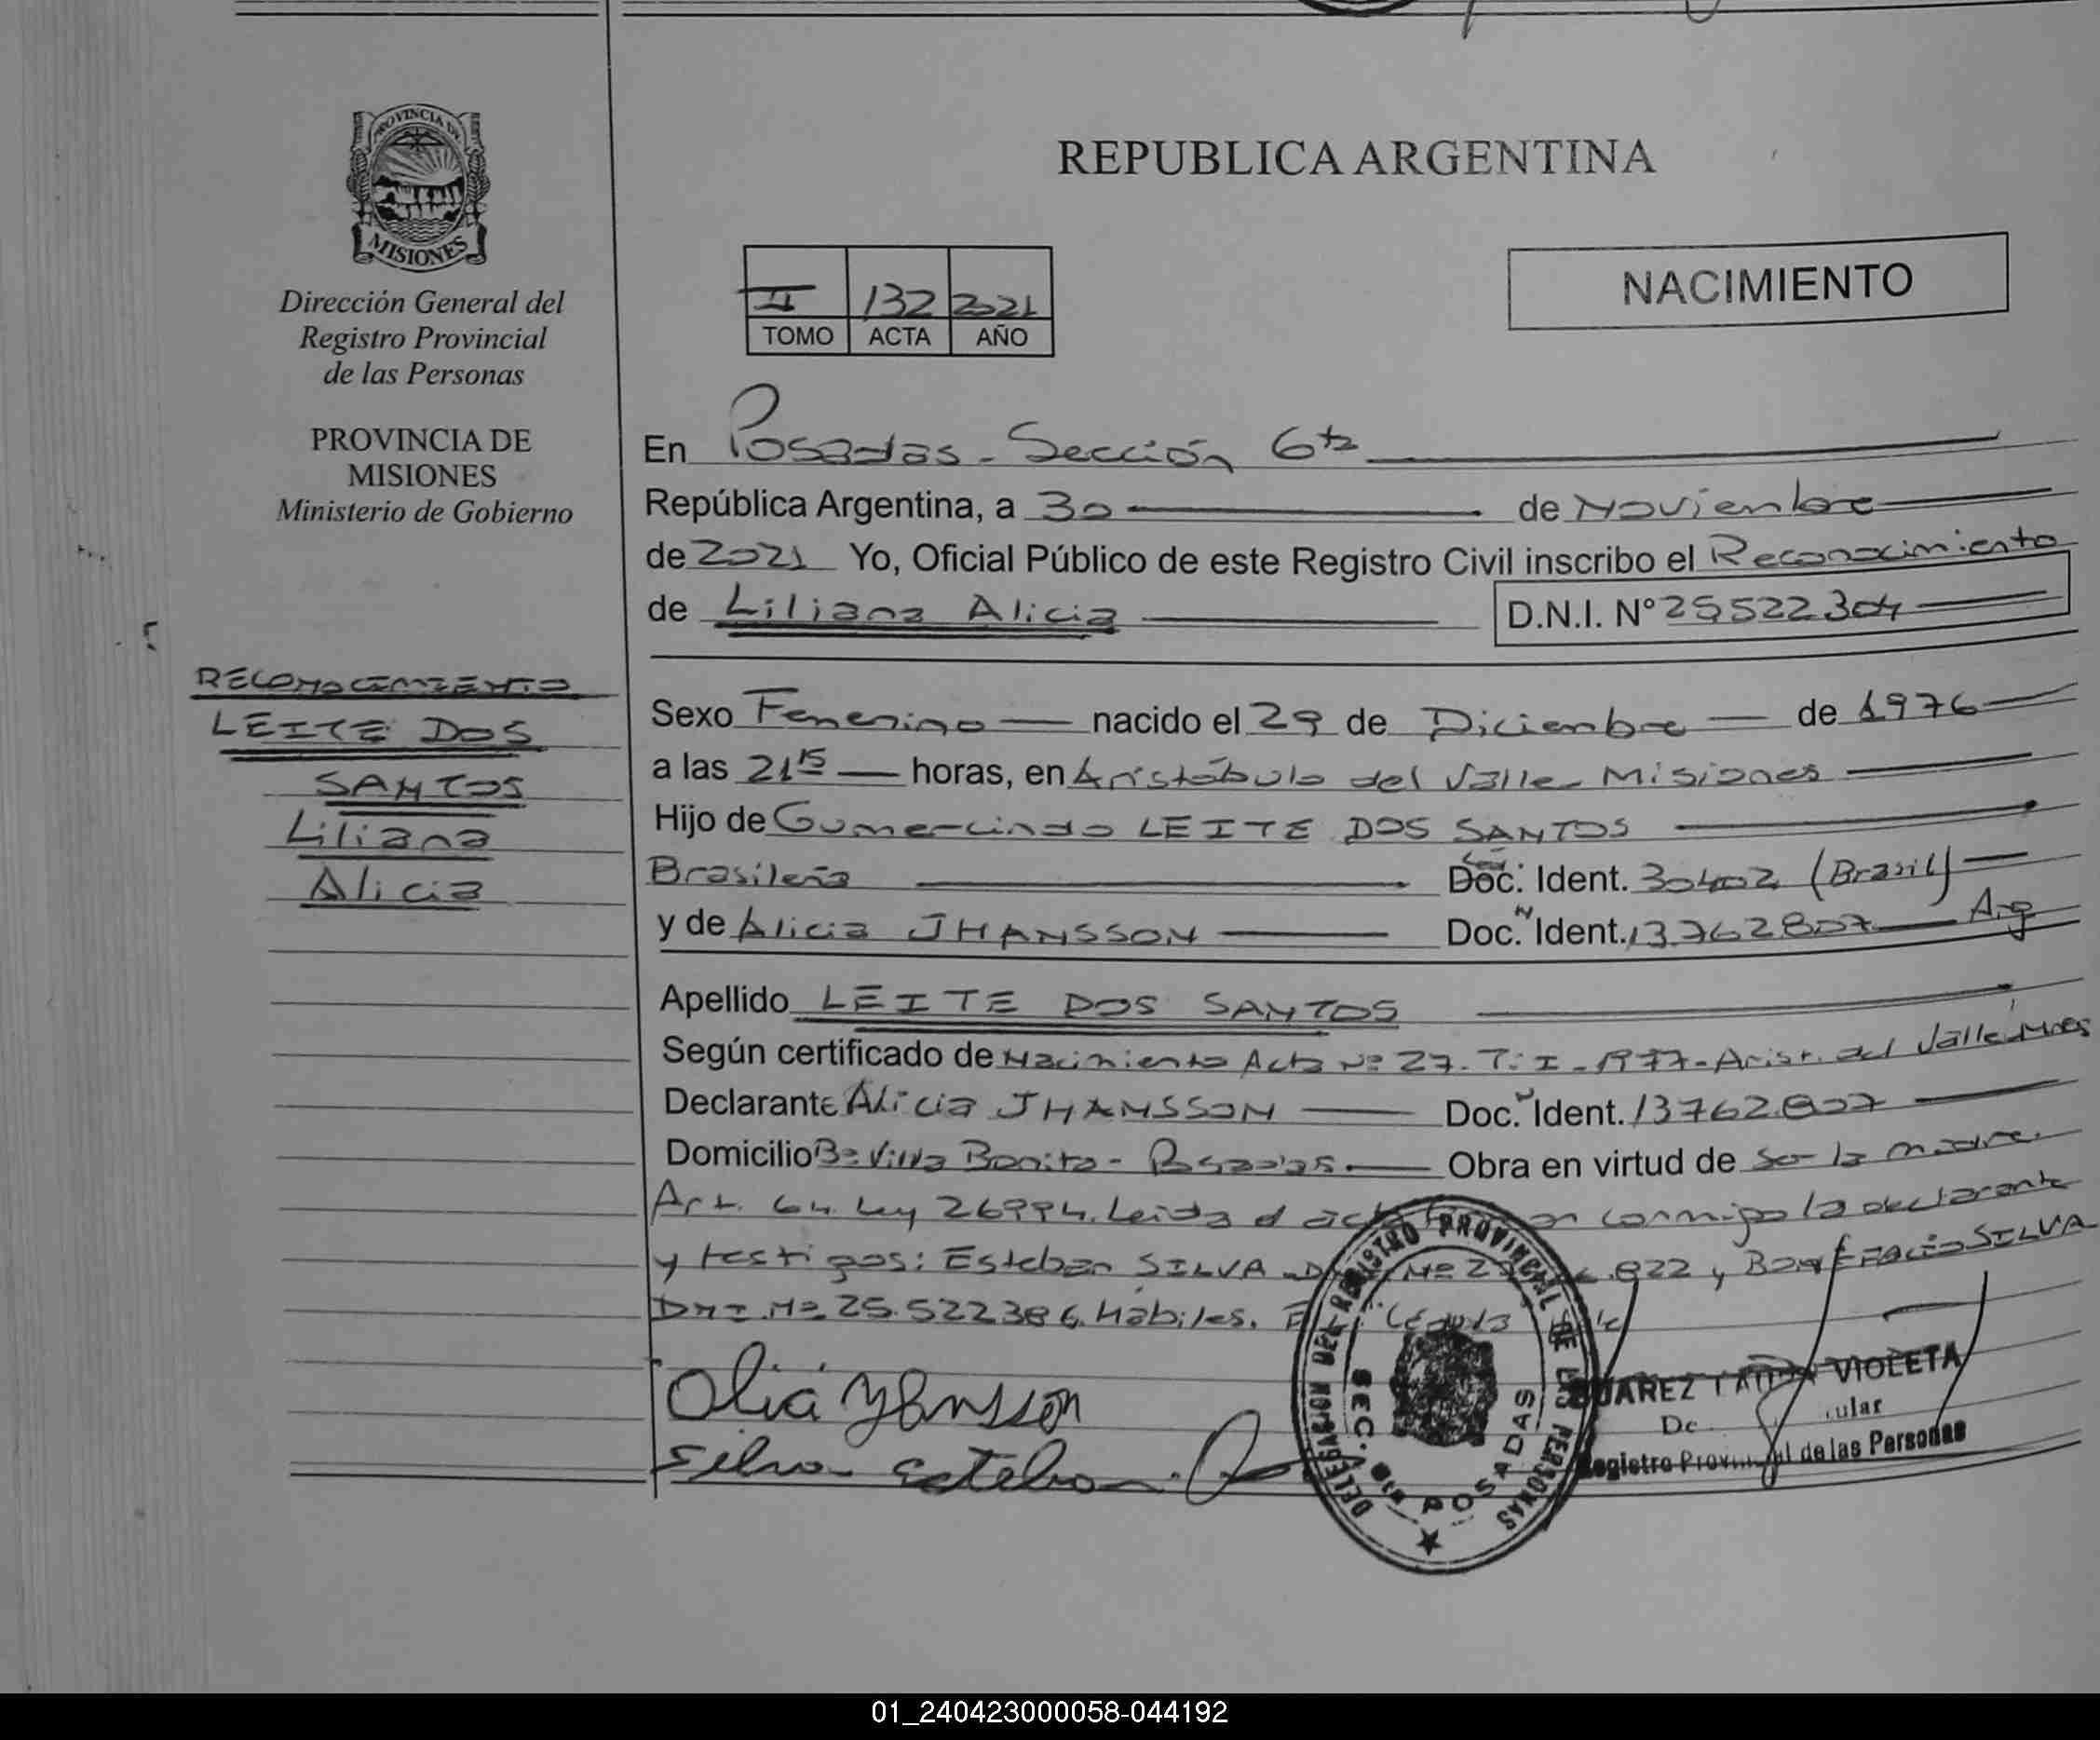 PROVINCIA DE
MISIONES
Dirección General del
Registro Provincial
de las Personas
PROVINCIA DE
MISIONES
Ministerio de Gobierno
RECONOCIMIENTO
LEITE DOS
SANTOS
Liliana
Alicia
REPUBLICA ARGENTINA
II 132 2021
TOMO ACTA AÑO
NACIMIENTO
En Posadas - Sección 6ta
República Argentina, a 30 de Noviembre
de 2021 Yo, Oficial Público de este Registro Civil inscribo el Reconocimiento
de Liliana Alicia D.N.I. N° 25522304
Sexo Femenino nacido el 29 de Diciembre de 1976
a las 21 15 horas, en Aristóbulo del Valle - Misiones
Hijo de Gumercindo LEITE DOS SANTOS
Brasileña Doc. Ident. 30402 (Brasil)
y de Alicia JHANSSON Doc. Ident. 13.762807 Arg
Apellido LEITE DOS SANTOS
Según certificado de Nacimiento Acta Nº 27. T: I - 1977 - Arist. del Valle Mnes
Declarante Alicia JHANSSON Doc. Ident. 13762.807
Domicilio Bº Villa Bonita - Posadas. Obra en virtud de ser la madre.
Art. 64. Ley 26994. Leida el acta conmigo la declarante
y testigos: Esteban SILVA .822 y Bonifacio SILVA
DNI. Nº 25.522386. Hábiles.
Silva Esteban
DELEGACION DEL REGISTRO PROVINCIAL DE LAS PERSONAS
SEC. 6ta POSADAS
SUAREZ VIOLETA
Registro Provincial de las Personas
01_240423000058-044192